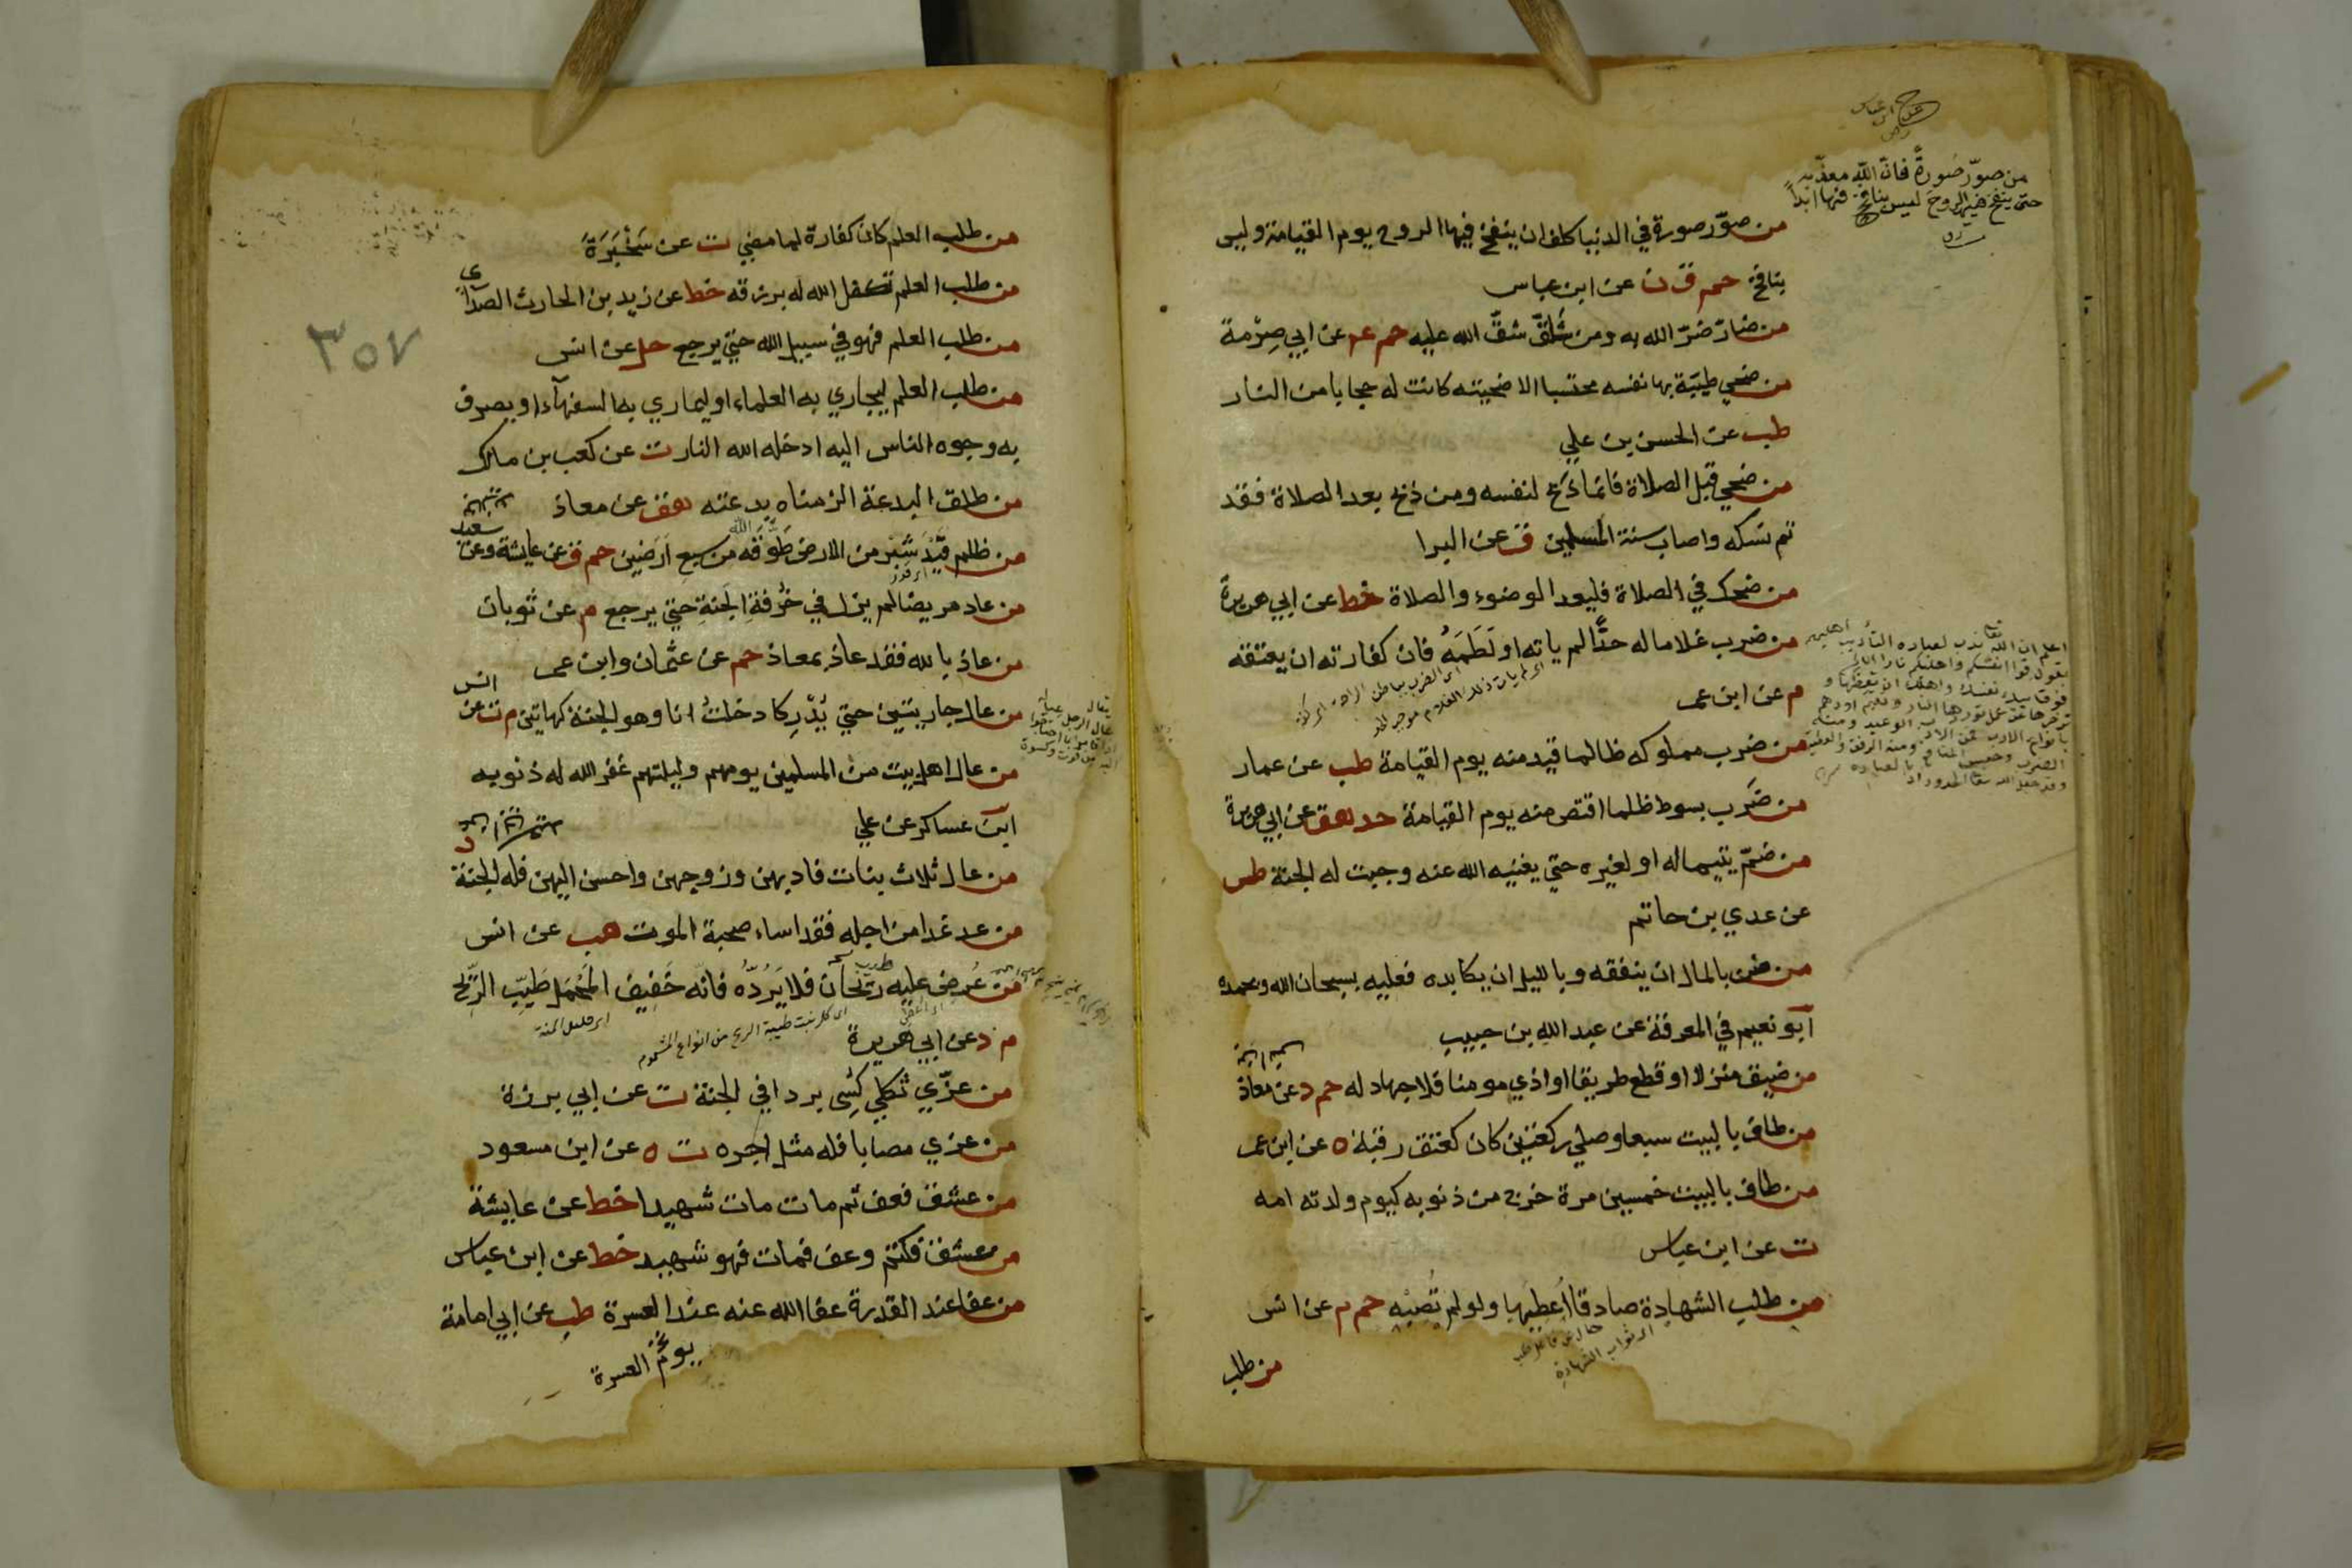 من صوّر صُورةً فانّ الله معذّبه
حتى ينفخ فيها الروح ليس بنافخ فيها ابداً
من صوّر صورة في الدنيا كلف ان ينفخ فيها الروح يوم القيامة وليس
بنافخ حم ق ن عن ابن عباس
من ضارّ ضرّ الله به ومن شاقّ شقّ الله عليه حم عه عن ابي صِرْمة
من ضحي طيّبة بها نفسه محتسبا لاضحيته كانت له حجابا من النار
طب عن الحسن بن علي
من ضحي قبل الصلاة فانما ذبح لنفسه ومن ذبح بعد الصلاة فقد
تم نسكه واصاب سنة المسلمين ق عن البرا
من ضحك في الصلاة فليعد الوضوء والصلاة خط عن ابي هريرة
من ضرب غلاما له حدًّا لم ياته او لَطَمَهُ فان كفارته ان يعتقه
م عن ابن عمر
من ضرب مملوكه ظالما قيد منه يوم القيامة طب عن عمار
من ضَرب بسوط ظلما اقتص منه يوم القيامة خد هق عن ابي هريرة
من ضمّ يتيما له او لغيره حتي يغنيه الله عنه وجبت له الجنة طس
عن عدي بن حاتم
من ضن بالمال ان ينفقه وبالليل ان يكابده فعليه بسبحان الله وبحمده
ابو نعيم في المعرفة عن عبد الله بن حبيب
من ضيق منزلا او قطع طريقا او اذي مومنا فلا جهاد له حم د عن معاذ
من طاف بالبيت سبعا وصلي ركعتين كان كعتق رقبة ه عن ابن عمر
من طاف بالبيت خمسين مرة خرج من ذنوبه كيوم ولدته امه
ت عن ابن عباس
من طلب الشهادة صادقا اُعطيَها ولو لم تُصِبْه حم م عن انس
اي ثواب الشهادة
من طلب
٣٥٧
من طلب العلم كان كفارة لما مضي ت عن سَخْبَرَةَ
من طلب العلم تكفل الله له برزقه خط عن زيد بن الحارث الصدائي
من طلب العلم فهو في سبيل الله حتي يرجع حل عن انس
من طلب العلم ليجاري به العلماء او ليماري به السفهاء او يصرف
به وجوه الناس اليه ادخله الله النار ت عن كعب بن مالك
من طلق البدعة الزمناه بدعته هق عن معاذ
من ظلم قِيْدَ شِبْر من الارض طَوّقه الله من سبع اَرَضين حم ق عن عايشة وعن سعيد
من عاد مريضا لم يزل في خُرْفَةِ الجَنةِ حتي يرجع م عن ثوبان
من عاذ بالله فقد عاذ بمعاذ حم عن عثمان وابن عمر
من عال جاريتين حتي يُدْرِكا دخلتُ انا وهو الجنة كهاتين م ت عن انس
من عال اهل بيت من المسلمين يومهم وليلتهم غفر الله له ذنوبه
ابن عساكر عن علي
من عال ثلاث بنات فادبهن وزوجهن واحسن اليهن فله الجنة
من عد غدا من اجله فقد اساء صحبة الموت هب عن انس
من عُرض عليه ريحان فلا يَرُدّهُ فانّه خَفِيف المَحْمَل طَيِّب الرّيح
م د عن ابي هريرة
اي كل نبت طيبة الريح من انواع المشموم
اي قليل المنة
من عزّي ثكلي كُسِي بردا في الجنة ت عن ابي برزة
من عزي مصابا فله مثل اجره ت ه عن ابن مسعود
من عشق فعف ثم مات مات شهيدا خط عن عايشة
من عشق فكتم وعف فمات فهو شهيد خط عن ابن عباس
من عفا عند القدرة عفا الله عنه عند العسرة طب عن ابي امامة
يوم العسرة